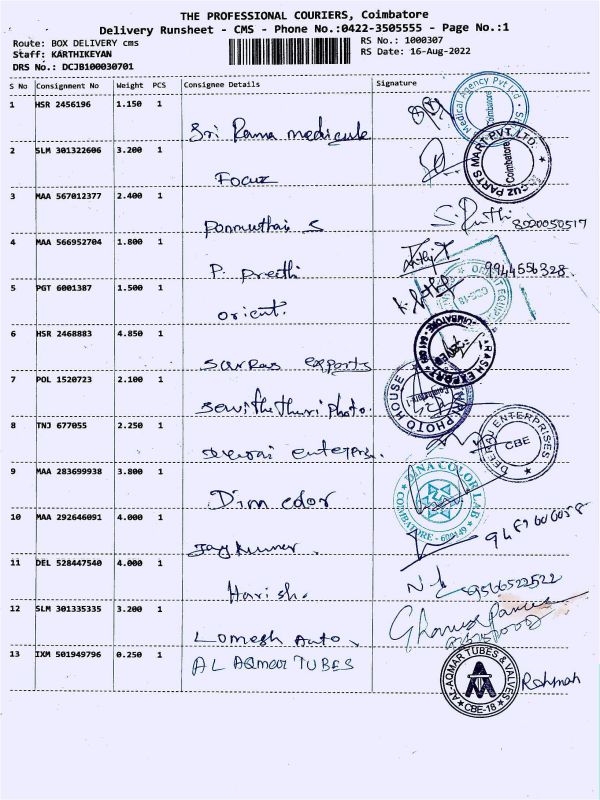 THE PROFESSIONAL COURIERS, Coimbatore
Delivery Runsheet - CMS - Phone No.:0422-3505555 - Page No.:1
Route: BOX DELIVERY cms
RS No.: 1000307
Staff: KARTHIKEYAN
RS Date: 16-Aug-2022
DRS No.: DCJB100030701
S No Consignment No Weight PCS Consignee Details Signature
1 HSR 2456196 1.150 1
Medical Agency Pvt Ltd
Coimbatore
Sri Rama medicule
2 SLM 301322606 3.200 1
FOCUZ PARTS MART PVT. LTD.
Coimbatore
Focuz
3 MAA 567012377 2.400 1
Ponmuthai S
S. Ruthi 8220050517
4 MAA 566952704 1.800 1
P. Preethi
9944556328
5 PGT 6001387 1.500 1
Orient.
6 HSR 2468883 4.850 1
COIMBATORE - 641
Sarkas exports
7 POL 1520723 2.100 1
PHOTO HOUSE
Coimbatore
Savithethuri photo.
8 TNJ 677055 2.250 1
ENTERPRISES
CBE
9 MAA 283699938 3.800 1
DINA COLOR LAB
COIMBATORE
Dim color
10 MAA 292646091 4.000 1
Jaykumar.
11 DEL 528447540 4.000 1
Harish.
9566522522
12 SLM 301335335 3.200 1
Lomesh Auto
13 IXM 501949796 0.250 1
AL AQmar TUBES
AL-AQMAR TUBES & VALVES
CBE-18
Rahmah